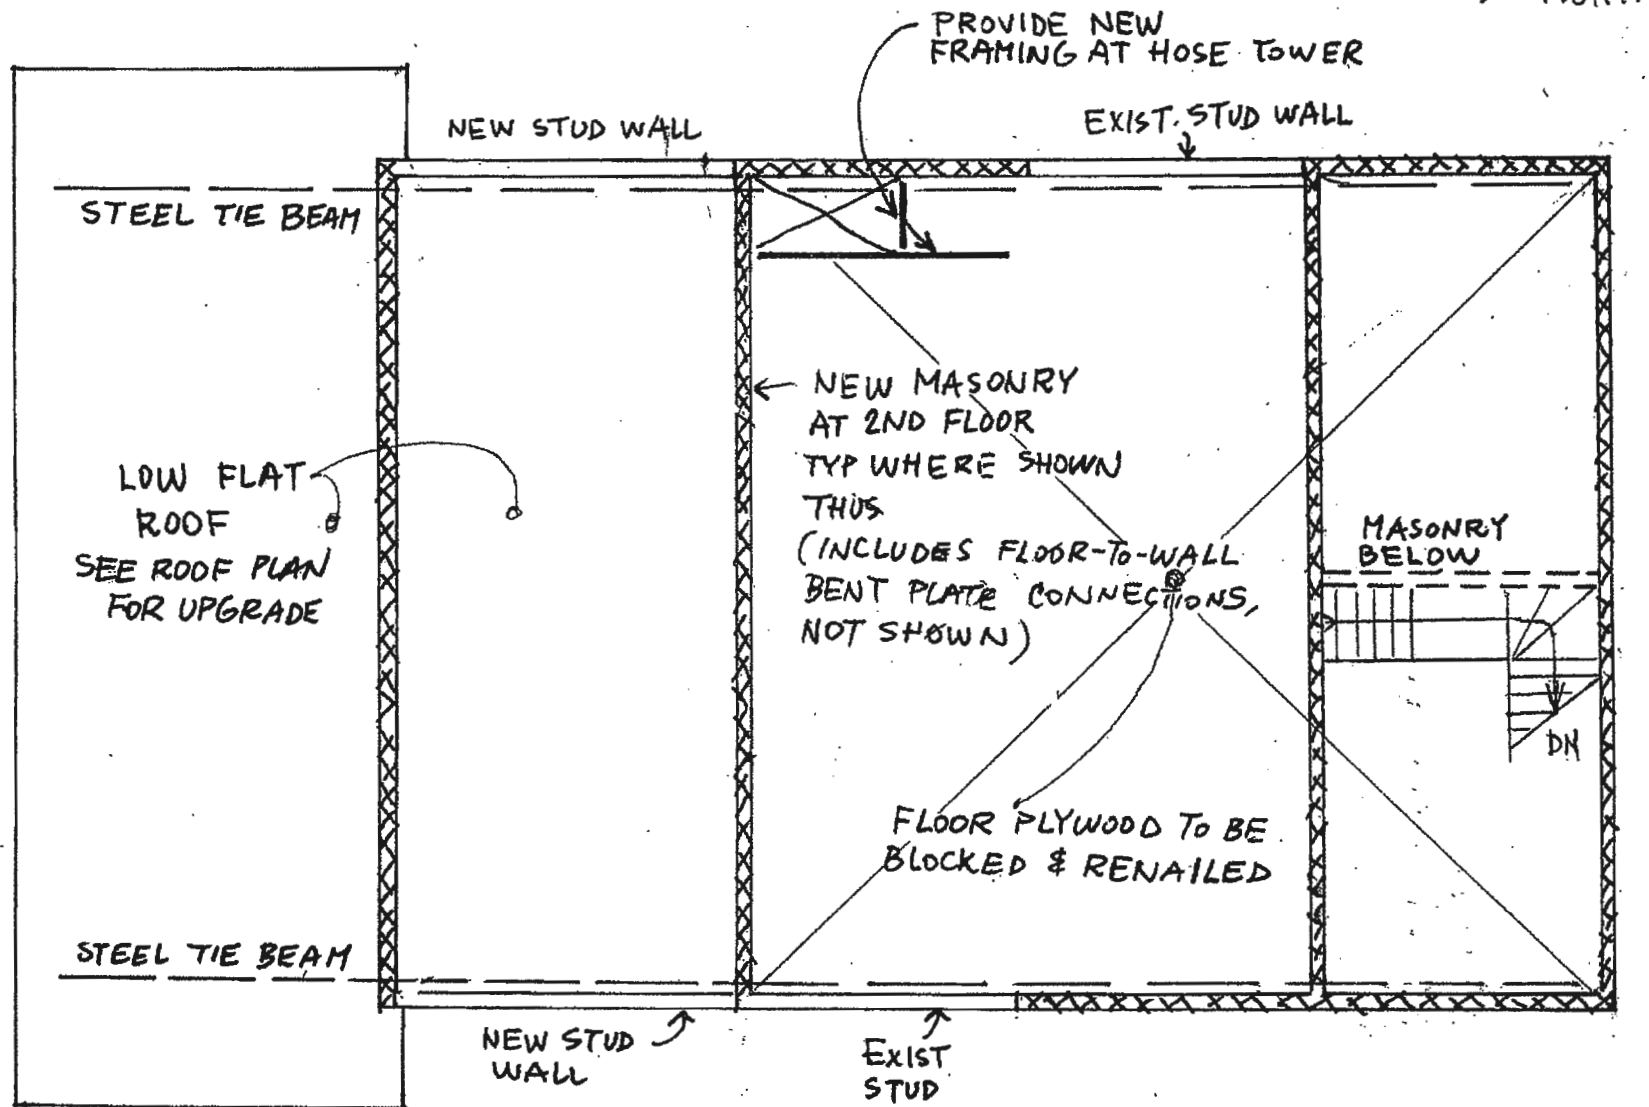 PROVIDE NEW
FRAMING AT HOSE TOWER
NEW STUD WALL
EXIST. STUD WALL
STEEL TIE BEAM
NEW MASONRY
AT 2ND FLOOR
TYP WHERE SHOWN
THUS
(INCLUDES FLOOR-TO-WALL
BENT PLATE CONNECTIONS,
NOT SHOWN)
LOW FLAT
ROOF
SEE ROOF PLAN
FOR UPGRADE
MASONRY
BELOW
DN
FLOOR PLYWOOD TO BE
BLOCKED & RENAILED
STEEL TIE BEAM
NEW STUD
WALL
EXIST
STUD